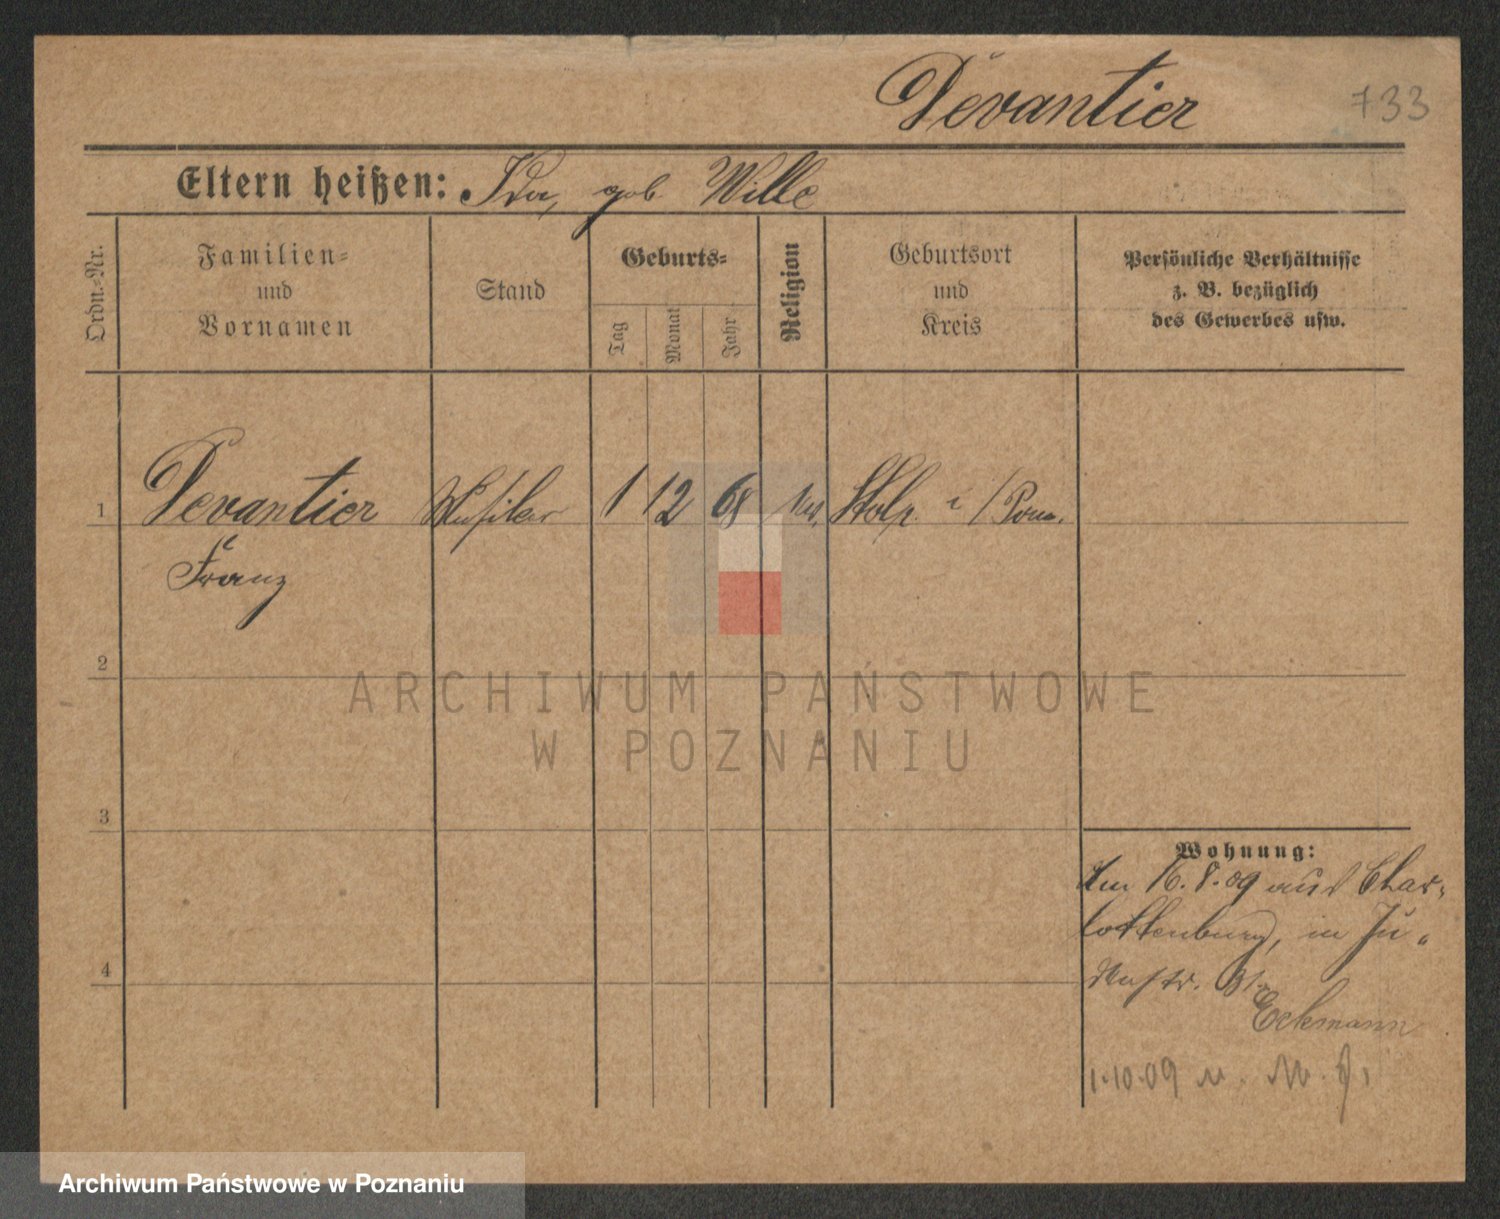 Devantier
733
Eltern heißen: Ida, geb Wille
Ordn.-Nr.
Familien-
und
Vornamen
Stand
Geburts-
Tag
Monat
Jahr
Religion
Geburtsort
und
Kreis
Persönliche Verhältnisse
z. B. bezüglich
des Gewerbes usw.
1 Devantier Musiker 1 12 68 Stolp i/Pom.
Franz
2
3
4
Wohnung:
Am 16.8.09 aus Char-
lottenburg, in Ju-
31.
Eckmann
1.10.09 n.
ARCHIWUM PAŃSTWOWE
W POZNANIU
Archiwum Państwowe w Poznaniu